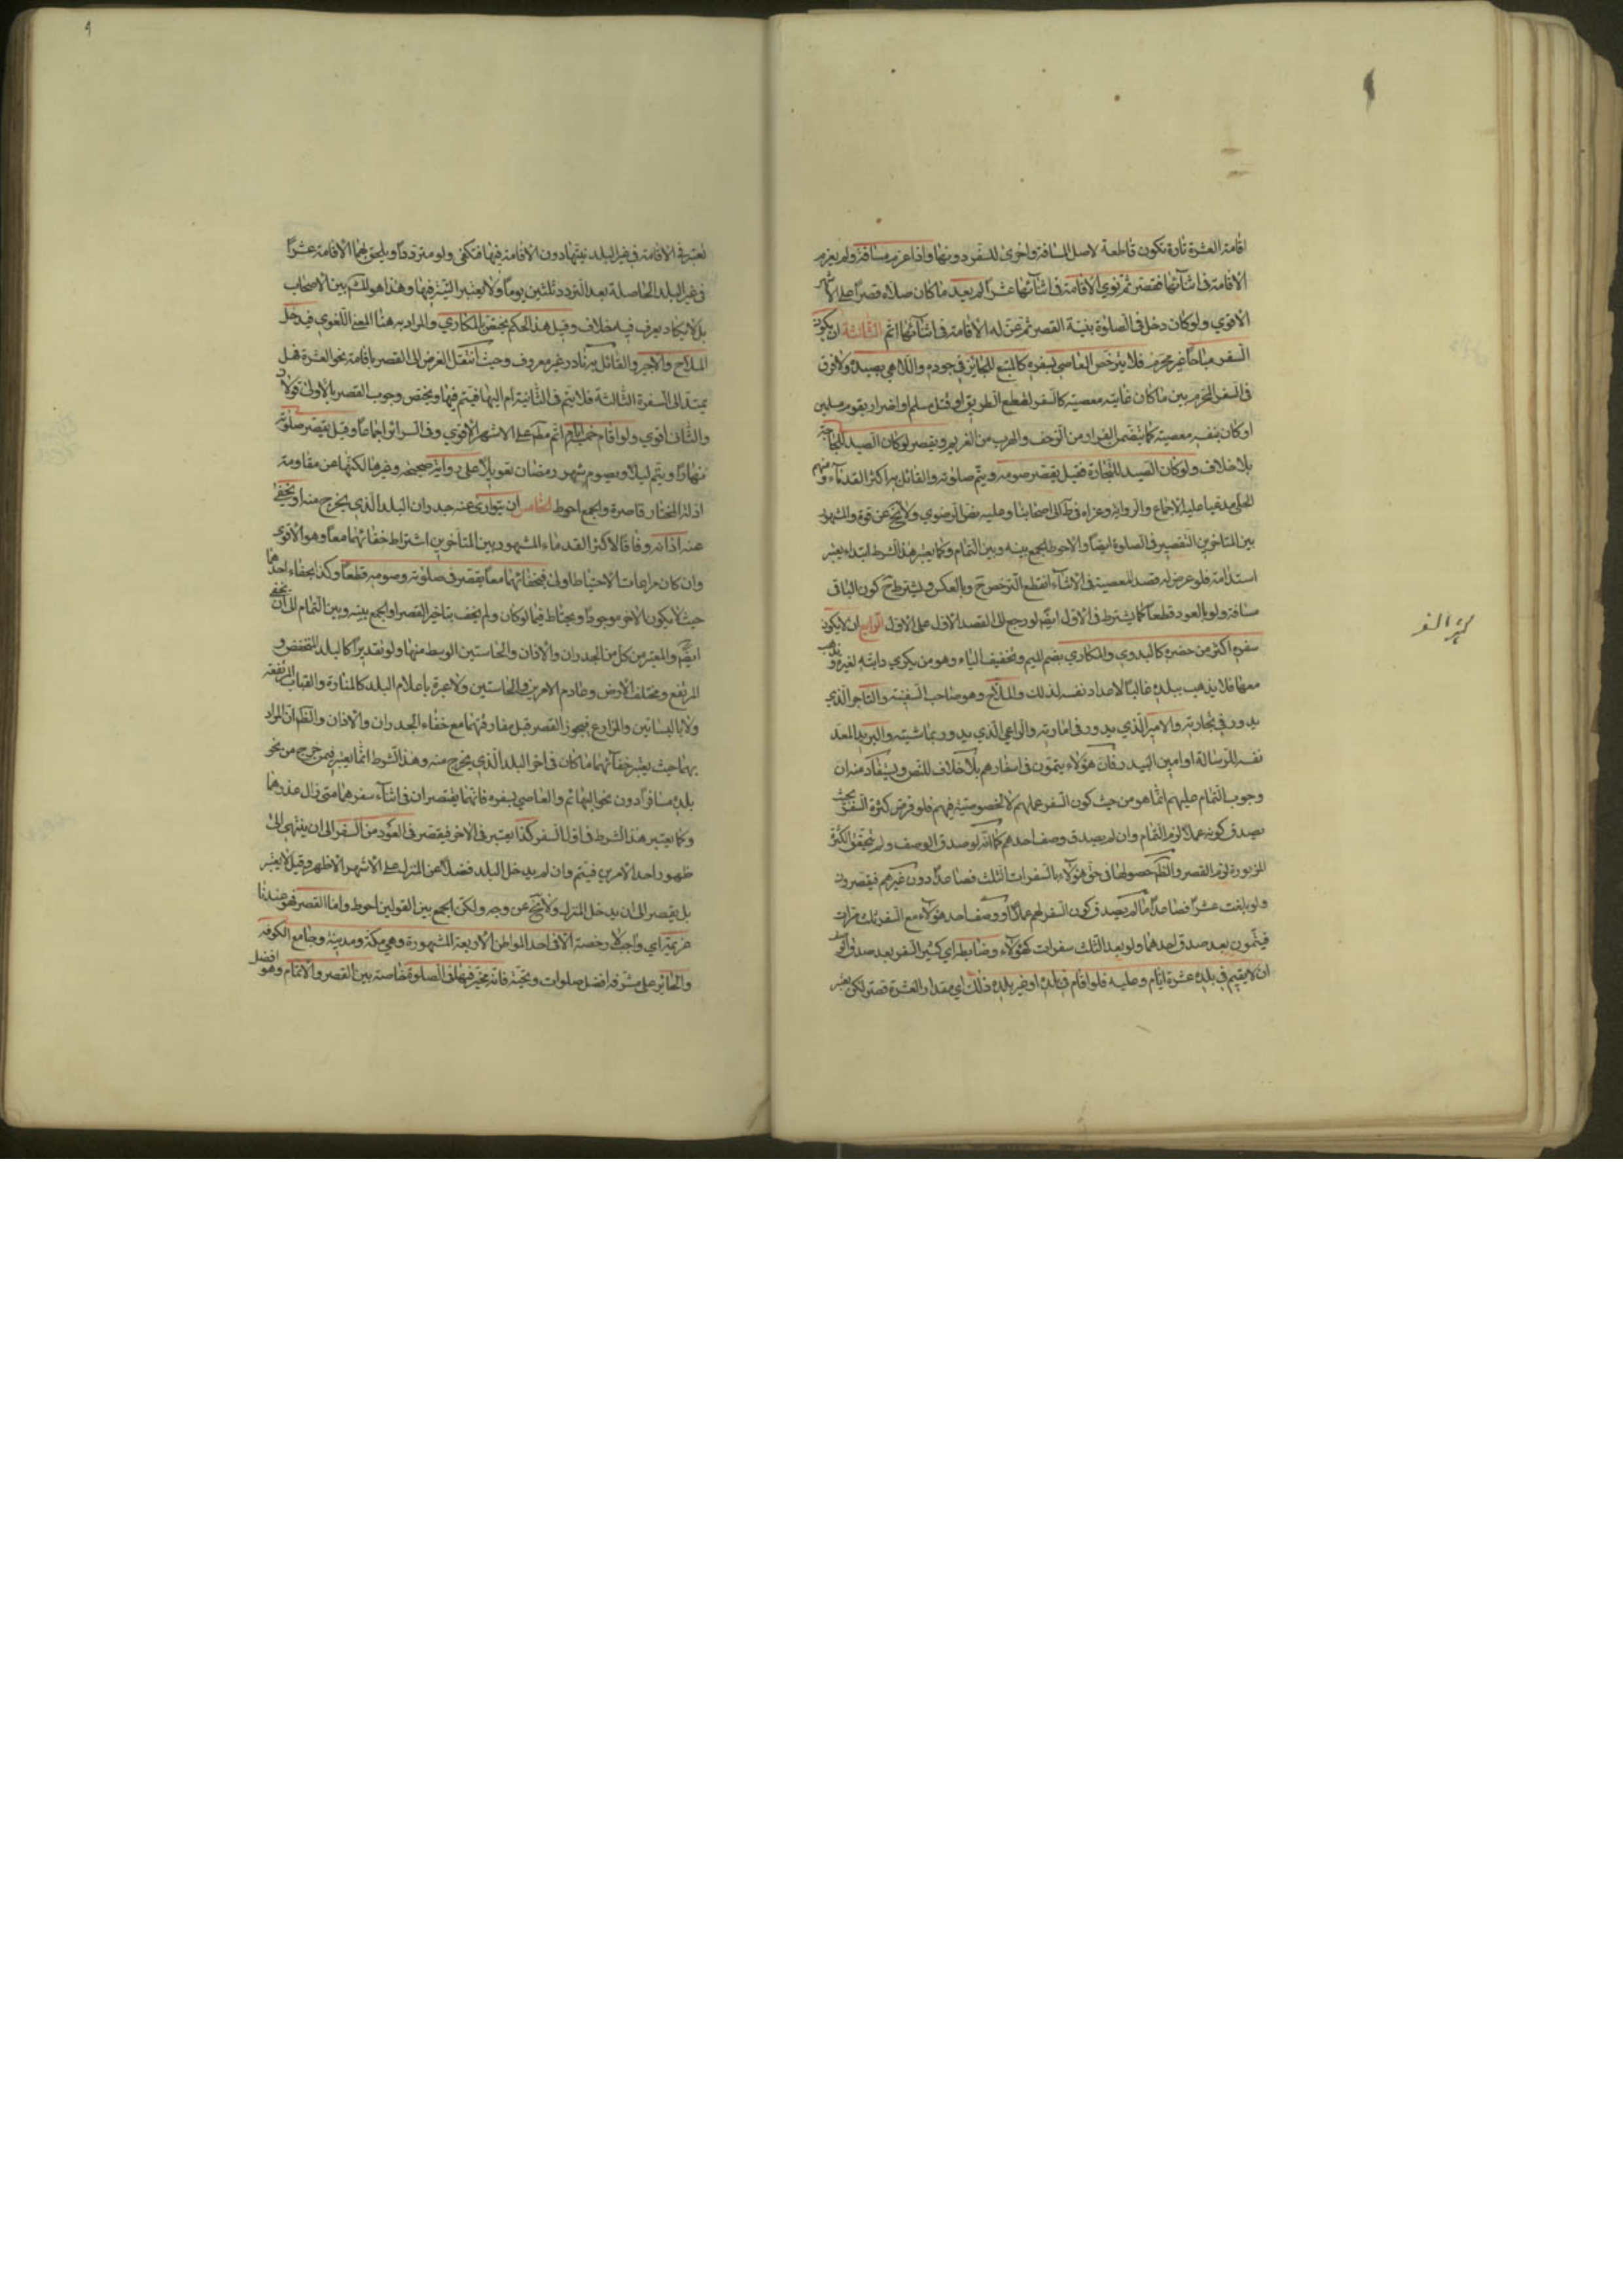 اقامة العشرة تارة تكون قاطعة لاصل المسافة واخرى للسفر دونها واذا عزم مسافة ولم يعزم
الاقامة في اثنائها فقصر ثم نوى الاقامة في اثنائها عشرا لم يعد ما كان صلاه قصرا على الاشهر
الاقوى ولو كان دخل في الصلوة بنية القصر ثم عن له الاقامة في اثنائها اتم الثالثة ان يكون
السفر مباحا غير محرم فلا يترخص العاصي بسفره كالمتبع للجائر في جوره واللاهي بصيده ولا فرق
في السفر المحرم بين ما كان غايته معصية كالسفر لقطع الطريق او قتل مسلم او اضرار بقوم مسلمين
او كان بنفسه معصية كالفرار من الزحف والهرب من الغريم ويقصر لو كان الصيد للحاجة
بلا خلاف ولو كان الصيد للتجارة فقيل يقصر صومه ويتم صلوته والقائل به اكثر القدماء ومنهم
الحلي مدعيا عليه الاجماع والرواية وعزاه في ط الى اصحابنا وعليه نص الرضوي ولا يخ عن قوة والمشهور
بين المتاخرين التقصير في الصلوة ايضا والاحوط الجمع بينه وبين التمام وكما يعتبر هذا الشرط ابتداء يعتبر
استدامة فلو عرض له قصد المعصية في الاثناء انقطع الترخص ح وبالعكس ويشترط ح كون الباقي
مسافة ولو بالعود قطعا كما يشترط في الاول ايضا لو رجع الى القصد الاول على الاول الرابع ان لا يكون
سفره اكثر من حضره كالبدوي والمكاري بضم الميم وتخفيف الياء وهو من يكري دابته لغيره ويذهب
معها فلا يذهب ببلده غالبا لاعداد نفسه لذلك والملاح وهو صاحب السفينة والتاجر الذي
يدور في تجارته والامير الذي يدور في امارته والراعي الذي يدور بماشيته والبريد المعد
نفسه للرسالة او امين البيدر فان هؤلاء يتمون في اسفارهم بلا خلاف للنص ويستفاد منه ان
وجوب التمام عليهم انما هو من حيث كون السفر عملهم لا لخصوصية فيهم فلو فرض كثرة السفر بحيث
يصدق كونه عملا لزم التمام وان لم يصدق وصف احدهم كما انه لو صدق الوصف ولم يتحقق الكثرة
المزبورة لزم القصر والظاهر حصولها في حق هؤلاء بالسفرات الثلث فصاعدا دون غيرهم فيقصرون
ولو بلغت عشرا فصاعدا ما لم يصدق كون السفر لهم عملا او وصف احد هؤلاء مع السفر ثلث مرات
فيتمون بعد صدق احدهما ولو بعد الثلث سفرات كهؤلاء وضابطه اي كثير السفر بعد صدق
ان لا يقيم في بلده عشرة ايام وعليه فلو اقام في بلده او غير بلده ذلك اي مقدار العشرة قصر لكن يعتبر
كثير السفر
تعتبر في الاقامة في غير البلد نيتها دون الاقامة فيها فتكفي ولو مترددا ويلحق بهما الاقامة عشرا
في غير البلد الحاصلة بعد التردد ثلثين يوما ولا يعتبر النية فيها وهذا هو بين الاصحاب
بل لا يكاد يعرف فيه خلاف وقيل هذا الحكم يختص المكاري والمراد به هنا المعنى اللغوي فيدخل
الملاح والاجير والقائل به نادر غير معروف وحيث انتقل الفرض الى القصر باقامة نحو العشرة فهل
يمتد الى السفرة الثالثة فلا يتم في الثانية ام اليها فيتم فيها ويختص وجوب القصر بالاولى قولان
والثاني اقوى ولو اقام خمسة ايام اتم مطلقا على الاشهر الاقوى وفي السرائر اجماعا وقيل يقصر صلوته
نهارا ويتم ليلا ويصوم شهر رمضان تعويلا على رواية صحيحة وغيرها لكنها عن مقاومة
ادلة المختار قاصرة والجمع احوط الخامس ان يتوارى عنه جدران البلد الذي يخرج منه او يخفى
عنه اذانه وفاقا لاكثر القدماء والمشهور بين المتاخرين اشتراط خفائهما معا وهو الاقوى
وان كان مراعات الاحتياط اولى فبخفائهما معا يقصر في صلوته وصومه قطعا وكذا بخفاء احدهما
حيث لا يكون الاخر موجودا ويحتاط فيما لو كان ولم يخف بتاخير القصر او الجمع بينه وبين التمام الى ان يخفى
ايضا والمعتبر من كل من الجدران والاذان والحاستين الوسط منها ولو تقديرا كالبلد المنخفض و
المرتفع ومختلف الارض وعادم الامرين والحاستين ولا عبرة باعلام البلد كالمنارة والقباب المرتفعة
ولا بالبساتين والمزارع فيجوز القصر قبل مفارقتها مع خفاء الجدران والاذان والظاهر ان المراد
بهما حيث يعتبر خفائهما ما كان في اخر البلد الذي يخرج منه وهذا الشرط انما يعتبر فيمن خرج من نحو
بلده مسافرا دون نحو الهائم والعاصي بسفره فانهما يقصران في اثناء سفرهما متى زال عذرهما
وكما يعتبر هذا الشرط في اول السفر كذا يعتبر في الاخر فيقصر في العود من السفر الى ان ينتهي الى
ظهور احد الامرين فيتم وان لم يدخل البلد فضلا عن المنزل على الاشهر الاظهر وقيل لا يعتبر
بل يقصر الى ان يدخل المنزل ولا يخ عن وجه ولكن الجمع بين القولين احوط واما القصر فهو عندنا
عزيمة اي واجب لا رخصة الا في احد المواطن الاربعة المشهورة وهي مكة ومدينة وجامع الكوفة
والحائر على مشرفه افضل صلوات وتحية فانه مخير فيها في الصلوة خاصة بين القصر والاتمام وهو افضل